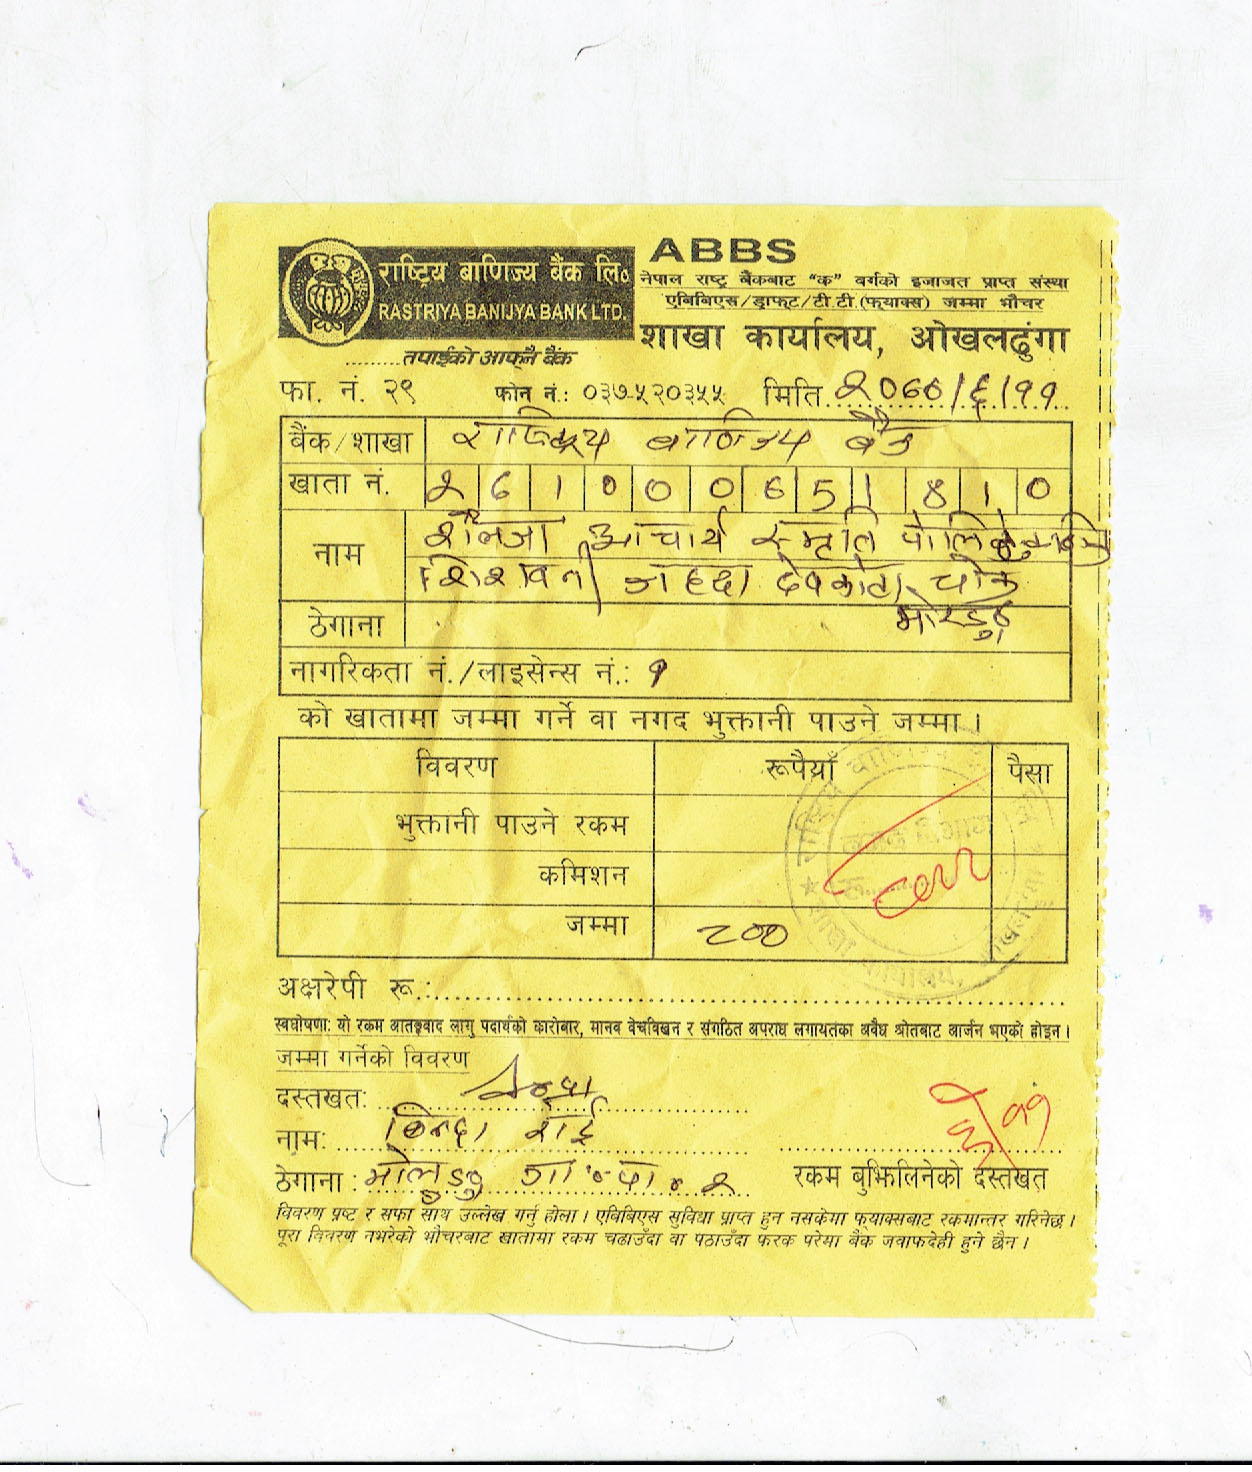 राष्ट्रिय बाणिज्य बैंक लि०
RASTRIYA BANIJYA BANK LTD.
.........तपाईको आफ्नै बैंक
ABBS
नेपाल राष्ट्र बैंकबाट “क” वर्गको इजाजत प्राप्त संस्था
एबिबिएस/ड्राफ्ट/टी.टी.(फ्याक्स) जम्मा भौचर
शाखा कार्यालय, ओखलढुंगा
फा. नं. २९ फोन नं.: ०३७-५२०३५५ मिति
बैंक/शाखा राष्ट्रिय बाणिज्य बैंक
खाता नं.
नाम शैलजा आचार्य स्मृति
जहदा देवकोटा चोक
ठेगाना मोरङ्ग
नागरिकता नं./लाइसेन्स नं.: १
को खातामा जम्मा गर्ने वा नगद भुक्तानी पाउने जम्मा ।
विवरण रूपैयाँ पैसा
भुक्तानी पाउने रकम
कमिशन
जम्मा 200
अक्षरेपी रू.:
स्वघोषणा: यो रकम आतङ्कवाद लागु पदार्थको कारोबार, मानव बेचबिखन र संगठित अपराध लगायतका अवैध श्रोतबाट आर्जन भएको होइन ।
जम्मा गर्नेको विवरण
दस्तखत:
नाम: बिन्दा राई
ठेगाना: २
रकम बुझिलिनेको दस्तखत
विवरण प्रष्ट र सफा साथ उल्लेख गर्नु होला । एबिबिएस सुविधा प्राप्त हुन नसकेमा फ्याक्सबाट रकमान्तर गरिनेछ ।
पूरा विवरण नभरेको भौचरबाट खातामा रकम चढाउँदा वा पठाउँदा फरक परेमा बैंक जवाफदेही हुने छैन ।